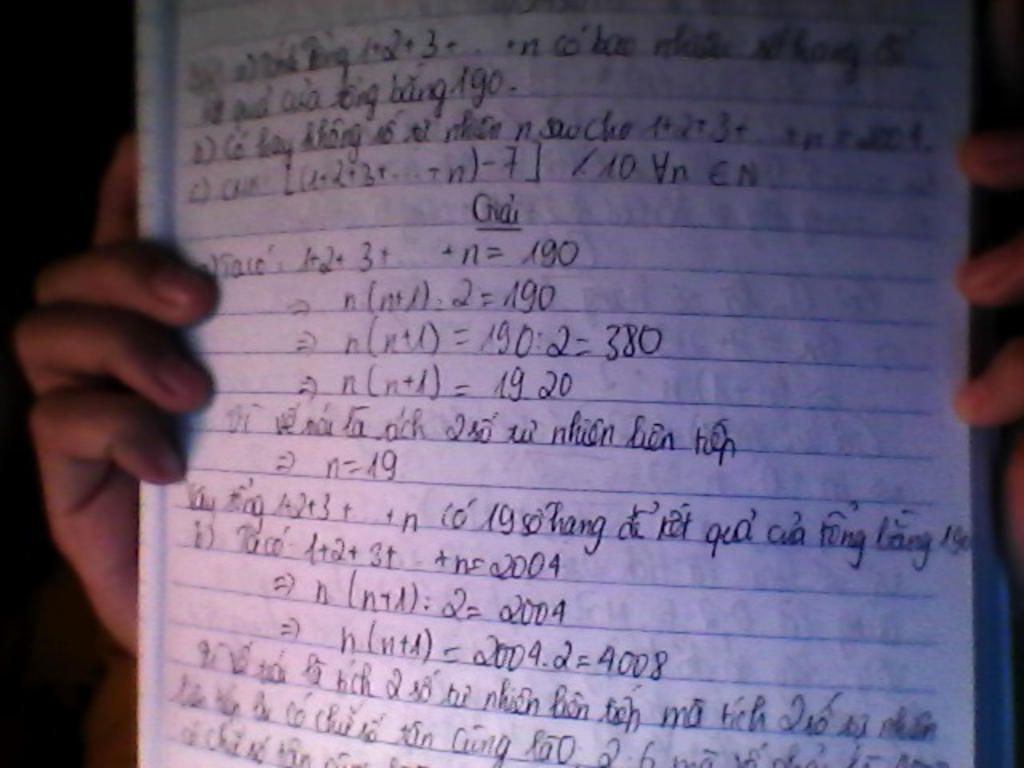 a) Tính tổng 1+2+3+ . . +n có bao nhiêu số hạng để
kết quả của tổng bằng 190.
b) Có hay không số tự nhiên n sao cho 1+2+3+ . . +n = 2004.
c) [(1+2+3+ . . . +n) - 7] ⋮̸ 10 ∀n ∈ N
Giải
a) Ta có: 1+2+3+ +n = 190
=> n(n+1):2 = 190
=> n(n+1) = 190:2 = 380
=> n(n+1) = 19.20
Vì vế trái là tích 2 số tự nhiên liên tiếp
=> n=19
Vậy tổng 1+2+3+ . +n có 19 số hạng để kết quả của tổng bằng 190
b) Ta có: 1+2+3+ . +n=2004
=> n(n+1):2 = 2004
=> n(n+1) = 2004.2=4008
Vì vế trái là tích 2 số tự nhiên liên tiếp mà tích 2 số tự nhiên
liên tiếp có chữ số tận cùng là 0; 2; 6 mà vế phải
có chữ số tận cùng